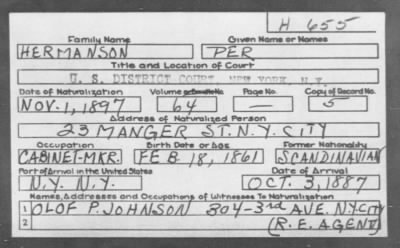 H 655
Family Name Given Name or Names
HERMANSON PER
Title and Location of Court
U. S. DISTRICT COURT, NEW YORK, N.Y.
Date of Naturalization Volume or Bundle No. Page No. Copy of Record No.
NOV. 1, 1897 64 — 5
Address of Naturalized Person
23 MANGER ST. N.Y. CITY
Occupation Birth Date or Age Former Nationality
CABINET-MKR. FEB 18, 1861 SCANDINAVIAN
Port of Arrival in the United States Date of Arrival
N.Y. N.Y. OCT. 3, 1887
Names, Addresses and Occupations of Witnesses To Naturalization
1 OLOF P. JOHNSON 804-3rd AVE. N.Y.CITY
2 (R.E. AGENT)